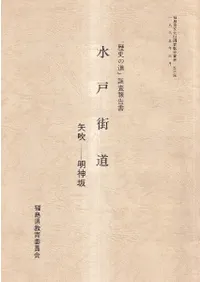 「歴史の道」調査報告書
水戸街道
矢吹——明神坂
福島県教育委員会